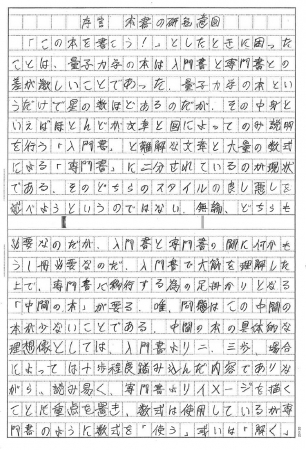 序言　本書の研究意図
「この本を書こう！」としたときに困った
ことは、量子力学の本は入門書と専門書との
差が激しいことであった。量子力学の本とい
うだけで星の数ほどあるのだが、その中身と
いえばほとんどが文章と図によってのみ説明
を行う「入門書」と難解な文章と大量の数式
による「専門書」に二分されているのが現状
である。そのどちらのスタイルの良し悪しを
述べようというのではない。無論、どちらも
必要なのだが、入門書と専門書の間に何かも
う１冊必要なのだ。入門書で大筋を理解した
上で、専門書に移行する為の足掛かりとなる
「中間の本」が要る。唯、問題はこの中間の
本が少ないことである。中間の本の具体的な
理想像としては、入門書より二、三歩、場合
によっては十歩程度踏み込んだ内容でありな
がら、読み易く、専門書よりイメージを描く
ことに重点を置き、数式は使用しているが専
門書のように数式を「使う」或いは「解く」